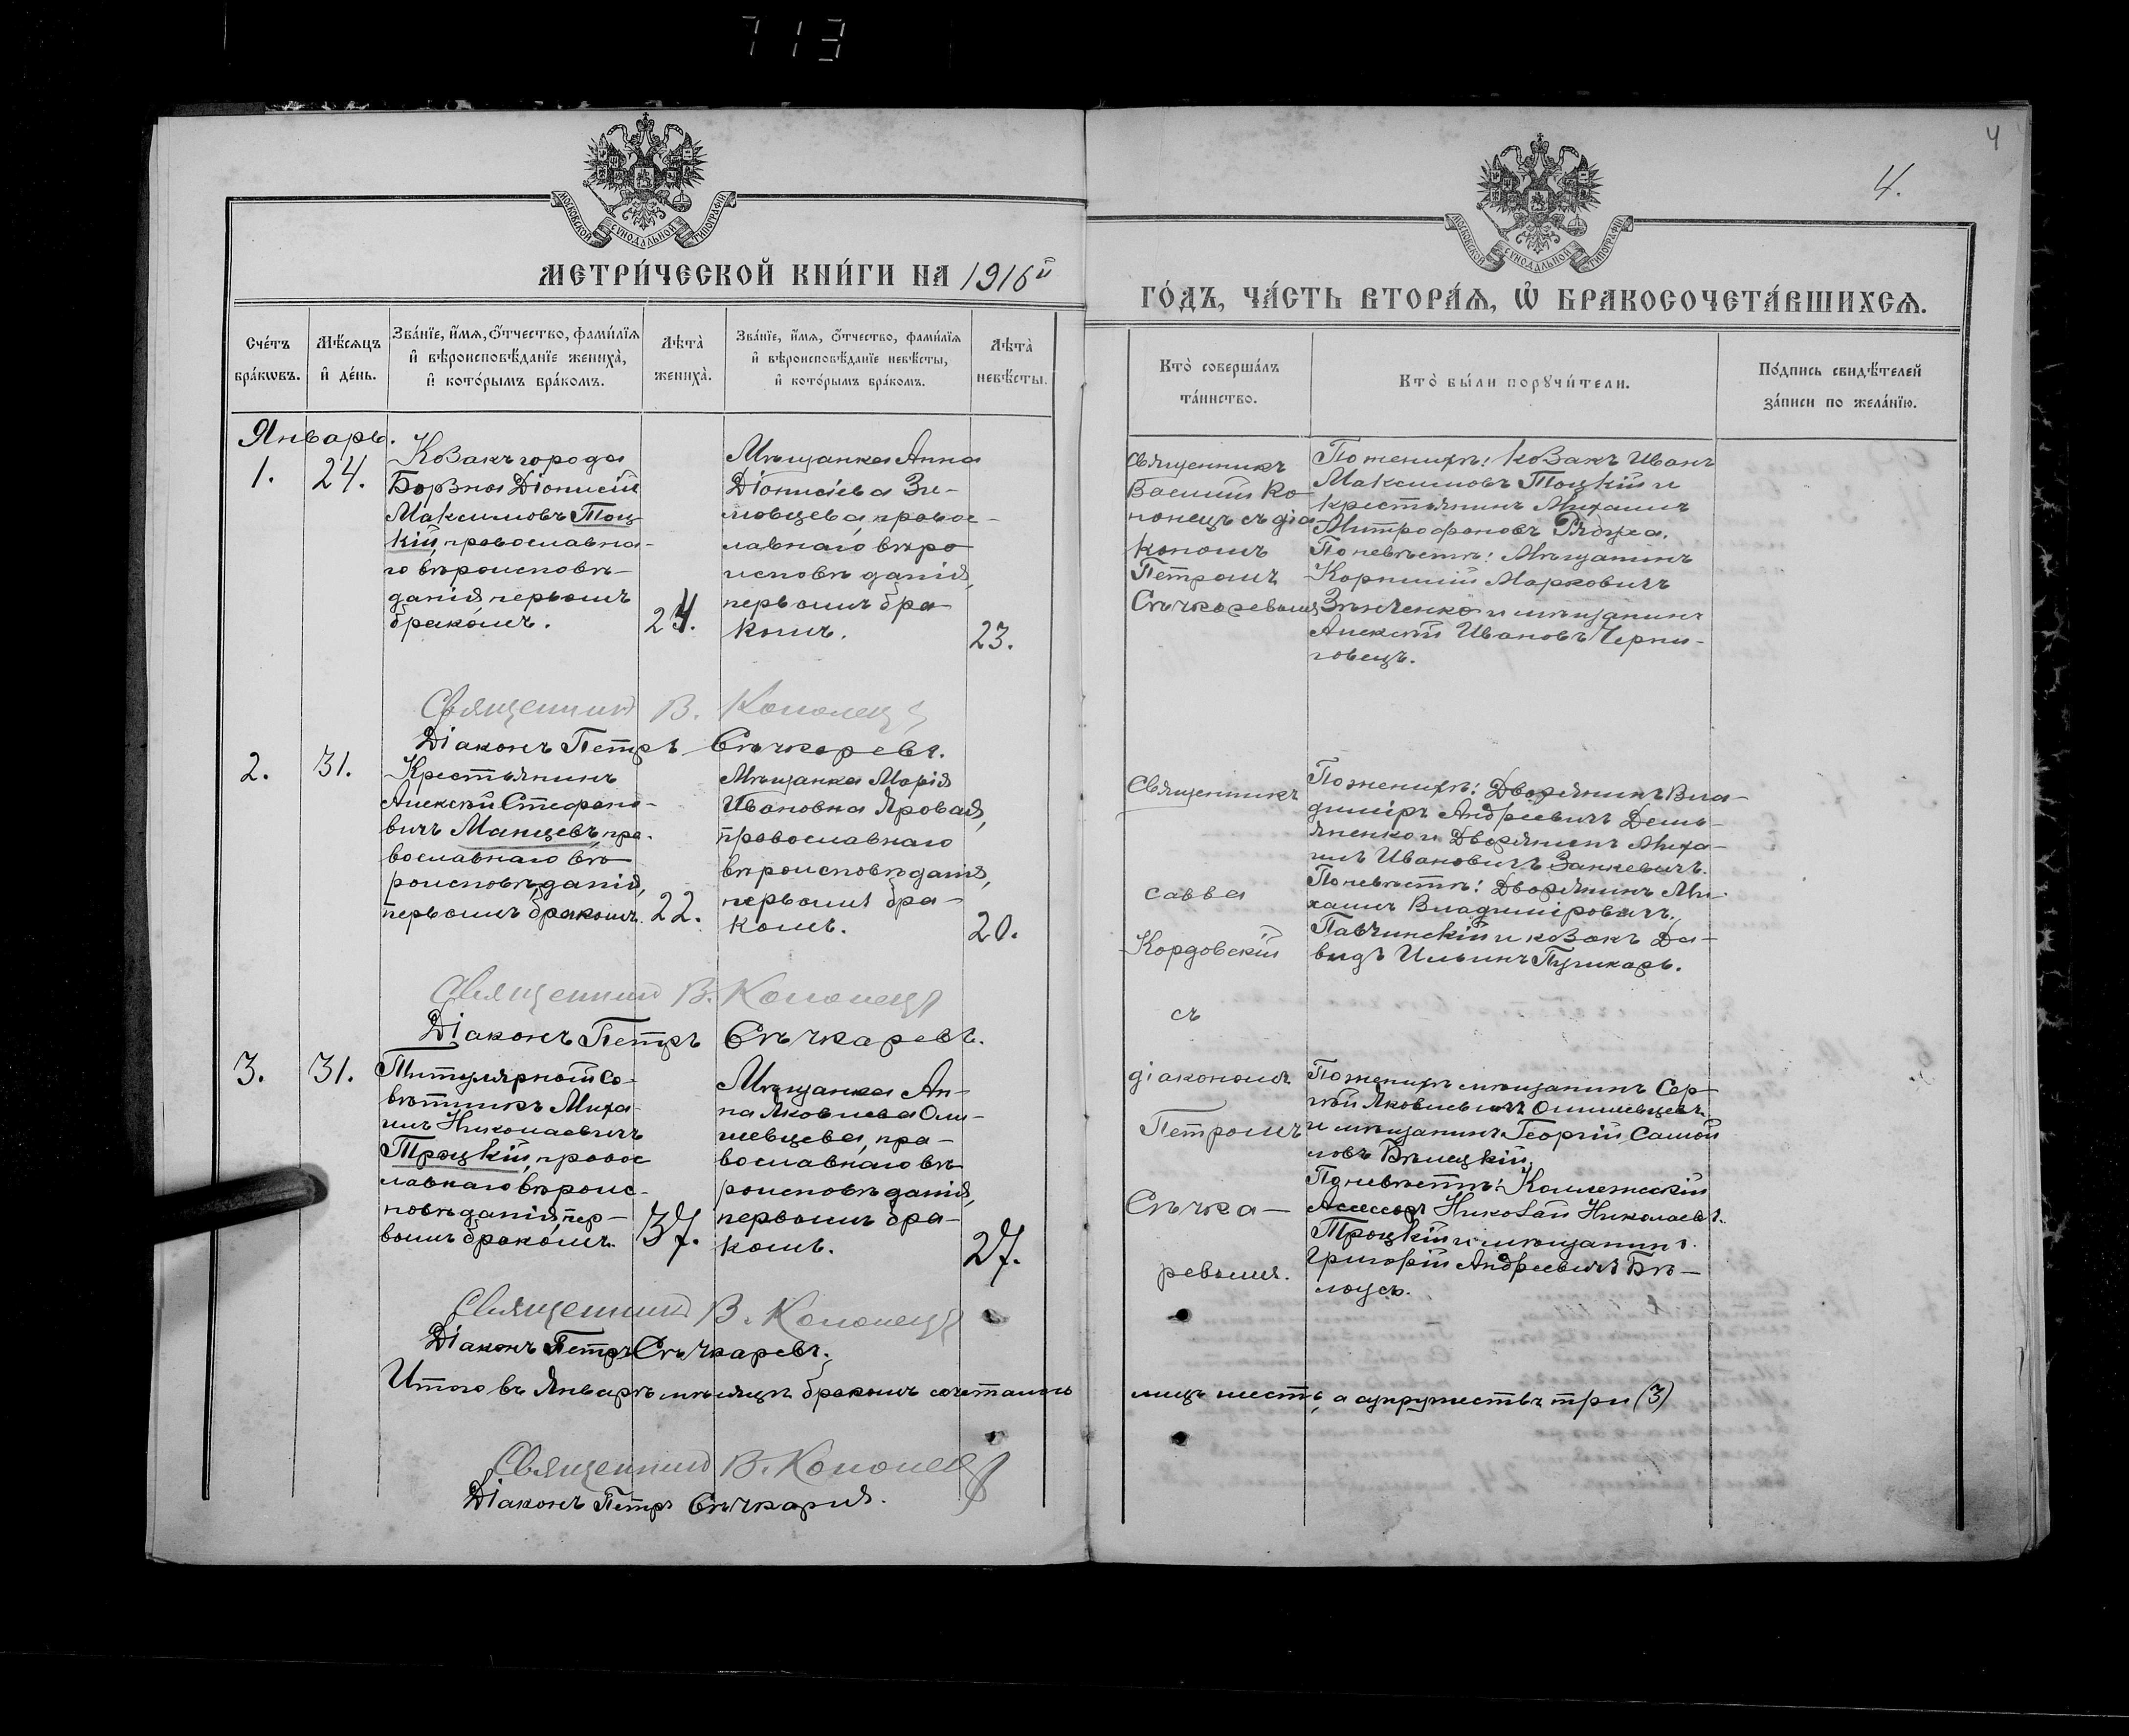 713
4
4.
МОСКОВСКОЙ СѴНОДАЛЬНОЙ ТИПОГРАФІИ
МОСКОВСКОЙ СѴНОДАЛЬНОЙ ТИПОГРАФІИ
МЕТРИ́ЧЕСКОЙ КНИ́ГИ НА 1916й
ГО́ДЪ, ЧА́СТЬ ВТОРА́Ѧ, Ѡ҆ БРАКОСОЧЕТА́ВШИХСѦ.
Сче́тъ бра́кѡвъ.
Мѣ́сѧцъ и҆ де́нь.
Зва́нїе, и҆́мѧ, ѻ҆́тчество, фами́лїѧ
и҆ вѣроисповѣ́данїе жениха̀,
и҆ кото́рымъ бра́комъ.
Лѣта̀ жениха̀.
Зва́нїе, и҆́мѧ, ѻ҆́тчество, фами́лїѧ
и҆ вѣроисповѣ́данїе невѣ́сты,
и҆ кото́рымъ бра́комъ.
Лѣта̀ невѣ́сты.
Кто̀ соверша́лъ
та́инство.
Кто̀ бы́ли порꙋчи́тели.
По́дпись свидѣ́телей
за́писи по жела́нїю.
Январь.
1.
24.
Козакъ города
Борзны Діонисій
Максимовъ Тоц-
кій, православна-
го вѣроисповѣ-
данія первымъ
бракомъ.
24.
Мѣщанка Анна
Діонисіева Зе-
мовцева, правос-
лавнаго вѣро
исповѣданія,
первымъ бра-
комъ.
23.
Священникъ
Василій Ко-
нонецъ съ діа-
кономъ
Петромъ
Сѣчкаревымъ
По женихѣ: козакъ Иванъ
Максимовъ Тоцкій и
крестьянинъ Михаилъ
Митрофановъ
По невѣстѣ: Мѣщанинъ
Корнилій Марковичъ
Зѣнченко и мѣщанинъ
Алексѣй Ивановъ Черни-
говецъ.
Священникъ В. Кононецъ
Діаконъ Петръ Сѣчкаревъ.
2.
31.
Крестьянинъ
Алексѣй Стефано-
вичъ Манцевъ, пра-
вославнаго вѣ-
роисповѣданія,
первымъ бракомъ.
22.
Мѣщанка Марія
Ивановна Яровая,
православнаго
вѣроисповѣданія,
первымъ бра-
комъ.
20.
Священникъ
Савва
Кордовскій
съ
діакономъ
Петромъ
Сѣчка-
ревымъ.
По женихѣ: Дворянинъ Вла-
диміръ Андреевичъ Демь-
яненко и Дворянинъ Миха-
илъ Ивановичъ Занкевичъ.
По невѣстѣ: Дворянинъ Ми-
хаилъ Владиміровичъ
Павчинскій и козакъ Да-
видъ Ильинъ Пушкарь.
Священникъ В. Кононецъ
Діаконъ Петръ Сѣчкаревъ.
3.
31.
Титулярный Со-
вѣтникъ Миха-
илъ Николаевичъ
Троцкій, правос
лавнаго вѣроис-
повѣданія, пер-
вымъ бракомъ.
37.
Мѣщанка Ан-
на Яковлева Оли-
шевцева, пра-
вославнаго вѣ-
роисповѣданія,
первымъ бра-
комъ.
27.
По женихѣ мѣщанинъ Сер-
гѣй Яковлевичъ Олишевцевъ
и мѣщанинъ Георгій Самой
ловъ Бѣлецкій,
По невѣстѣ: Коллежскій
Асессоръ Николай Николаевъ.
Троцкій и мѣщанинъ
Григорій Андреевичъ Бѣ-
лоусъ.
Священникъ В. Кононецъ
Діаконъ Петръ Сѣчкаревъ.
Итого въ Январѣ мѣсяцѣ бракомъ сочеталось лицъ шесть, а супружествъ три (3)
Священникъ В. Кононецъ
Діаконъ Петръ Сѣчкаревъ.